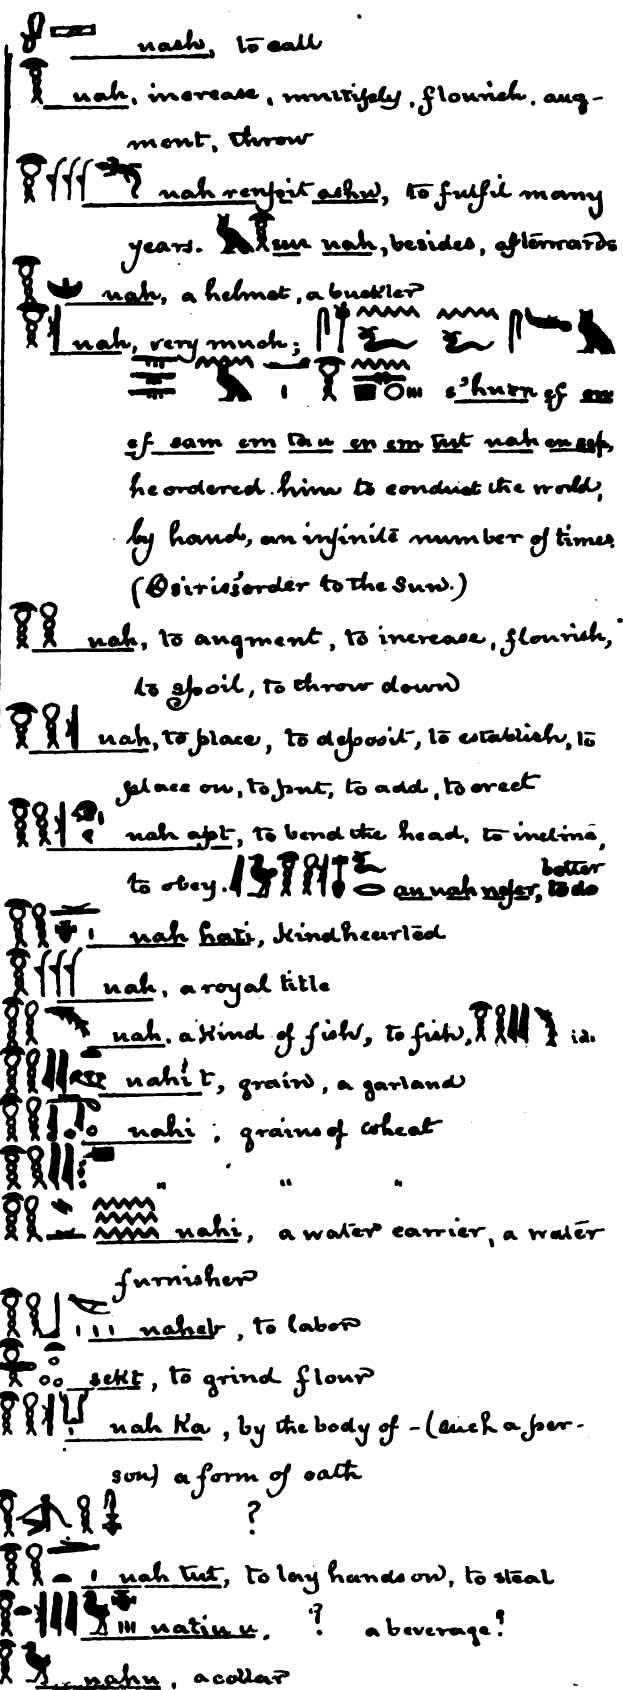 nash, to call
nah, increase, multiply, flourish, aug-
ment, throw
nah renpit ashu, to fulfil many
years. sun nah, besides, afterwards
nah, a helmet, a buckler
nah, very much;
s'hurn ef em
ef sam em ta u en em tut nah en sep,
he ordered him to conduct the world,
by hand, an infinite number of times
(Osiris' order to the Sun.)
nah, to augment, to increase, flourish,
to spoil, to throw down
nah, to place, to deposit, to establish, to
place on, to put, to add, to erect
nah apt, to bend the head, to incline,
to obey. an nah nefer, to do better
nah hati, Kindhearted
nah, a royal title
nah, a kind of fish, to fish, id.
nahit, grain, a garland
nahi, grains of wheat
" " "
nahi, a water carrier, a water
furnisher
naheb, to labor
sekt, to grind flour
nah Ka, by the body of - (such a per-
son) a form of oath
?
nah tut, to lay hands on, to steal
natiu u, ? a beverage?
nahu, a collar